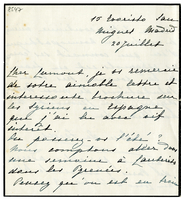 15 Evaristo San
Miguel Madrid
20 juillet
Cher Cumont, je vs remercie
de votre aimable lettre et
intéressante brochure sur
les Syriens en Espagne,
que j'ai lu avec vif
intérêt.
Où passez-vs l'été?
Nous comptons aller
une semaine à Cauterets
dans les Pyrénées.
Pensez qu'on est en train